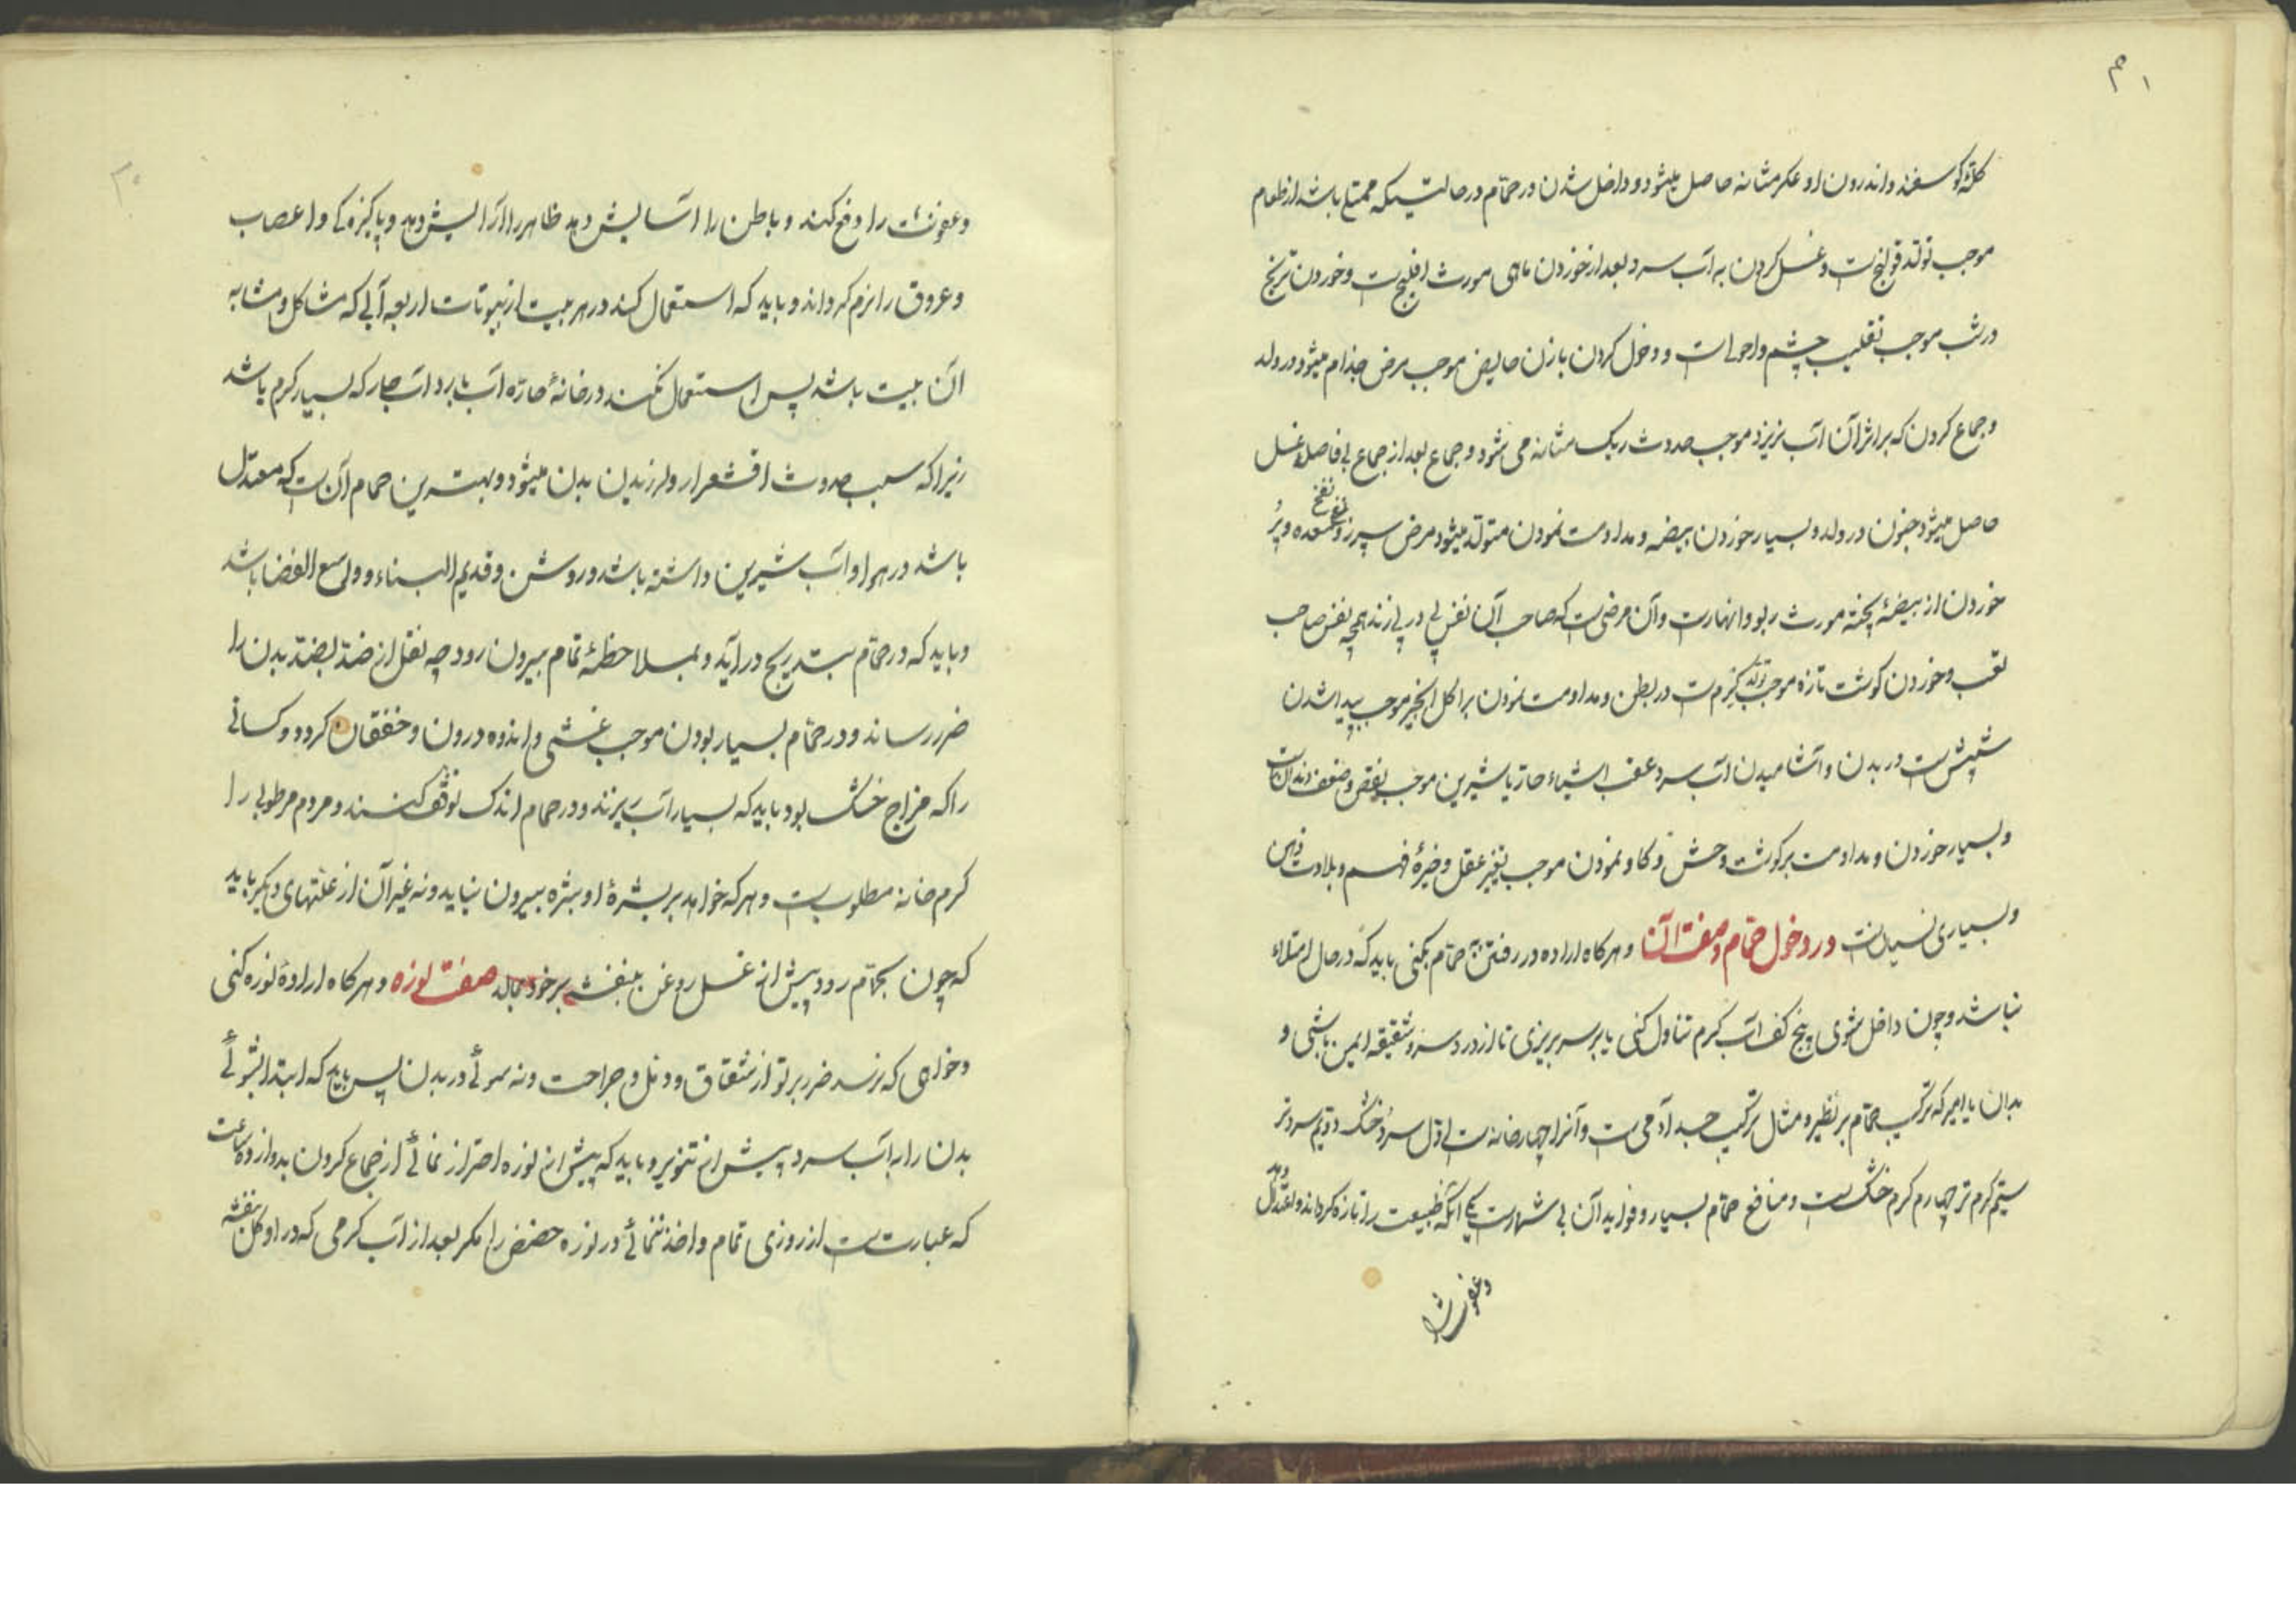 کلۀ کوسفند و اندرون او عکر مثانه حاصل میشود و داخل شدن در حمّام در حالتیکه ممتلی باشد از طعام
موجب تولد قولنج است و غسل کردن به آب سرد بعد از خوردن ماهی مورث افلیج است و خوردن ترنج
در شب موجب تقلیب چشم و احولی است و دخول کردن با زن حایض موجب مرض جذام میشود در ولد
و جماع کردن که بر اثر آن آب نریزد موجب حدوث ریک مثانه می شود و جماع بعد از جماع بی فاصلۀ غسل
حاصل میشود جنون در ولد و بسیار خوردن بیضه و مداومت نمودن متولّد میشود مرض سپرز و نفخ معده و پُر
خوردن از بیضۀ پخته مورث ربو و انبهار است و آن مرضی است که صاحب آن نفس پی در پی زند همچه نفس صاحب
تعب و خوردن کوشت تازه موجب تولّد کرم است در بطن و مداومت نمودن بر اکل انجیر موجب پیدا شدن
شپش است در بدن و آشامیدن آب سرد عقب اشیاء حار یا شیرین موجب نقص و ضعف دندان است
و بسیار خوردن و مداومت بر کوشت وحش و کاو نمودن موجب تغیر عقل و خیرۀ فهم و بلادت ذهن
و بسیاری نسیان است در دخول حمّام و صفت آن و هرکاه اراده در رفتن به حمّام بکنی باید که در حال امتلاء
نباشد و چون داخل شوی پنج کف آب کرم تناول کنی یا بر سر بریزی تا از درد سر و شقیقه ایمن باشی و
بدان یا امیر که ترکیب حمّام بر نظیر و مثل ترکیب جسد آدمی است و آنرا چهار خانه است اوّل سرد خشک دویّم سرد تر
سیّم کرم تر چهارم کرم خشک است و منافع حمّام بسیار و فواید آن بی شمار است یکی آنکه طبیعت را تازه کرداند و اعتدال دهد
و عفونت را
و عفونت را دفع کند و باطن را آسایش دهد ظاهر را آرایش دهد و پاکیزه کی و اعصاب
و عروق را نرم کرداند و باید که استعمال کند در هر بیت از بیوتات اربعه آبی که مشاکل و مشابه
آن بیت باشد پس استعمال نکند در خانۀ حارّه آب بارد و آب حار که بسیار کرم باشد
زیرا که سبب حدوث اقشعرار و لرزیدن بدن میشود و بهترین حمام آن است که معتدل
باشد در هوا و آب شیرین داشته باشد و روشن و قدیم البناء و واسع الفضا باشد
و باید که در حمّام بتدریج در آید و بملاحظۀ تمام بیرون رود چه نقل از ضد بضد بدن را
ضرر رساند و در حمّام بسیار بودن موجب غشی و اندوه درون و خفقان کردد و کسانی
را که مزاج خشک بود باید که بسیار آب بریزند و در حمام اندک توقّف کنند و مردم مرطوبی را
کرم خانه مطلوب است و هر که خواهد بر بشرۀ او بثره بیرون نیاید و نه غیر آن از علّتهای دیکر باید
که چون بحمّام رود پیش از غسل روغن بنفشه بر خود بمالد صفت نوره و هرکاه ارادۀ نوره کنی
و خواهی که نرسد ضرر بر تو از شقاق و دمل و جراحت و نه سوئی در بدن پس باید که ابتدا بشوئی
بدن را به آب سرد پیش از تنویر و باید که پیش از نوره احتراز نمائی از جماع کردن بدوازده ساعت
که عبارتست از روزی تمام و اخذ ننمائی در نوره حضض را مکر بعد از آب کرمی که در او کل بنفشه